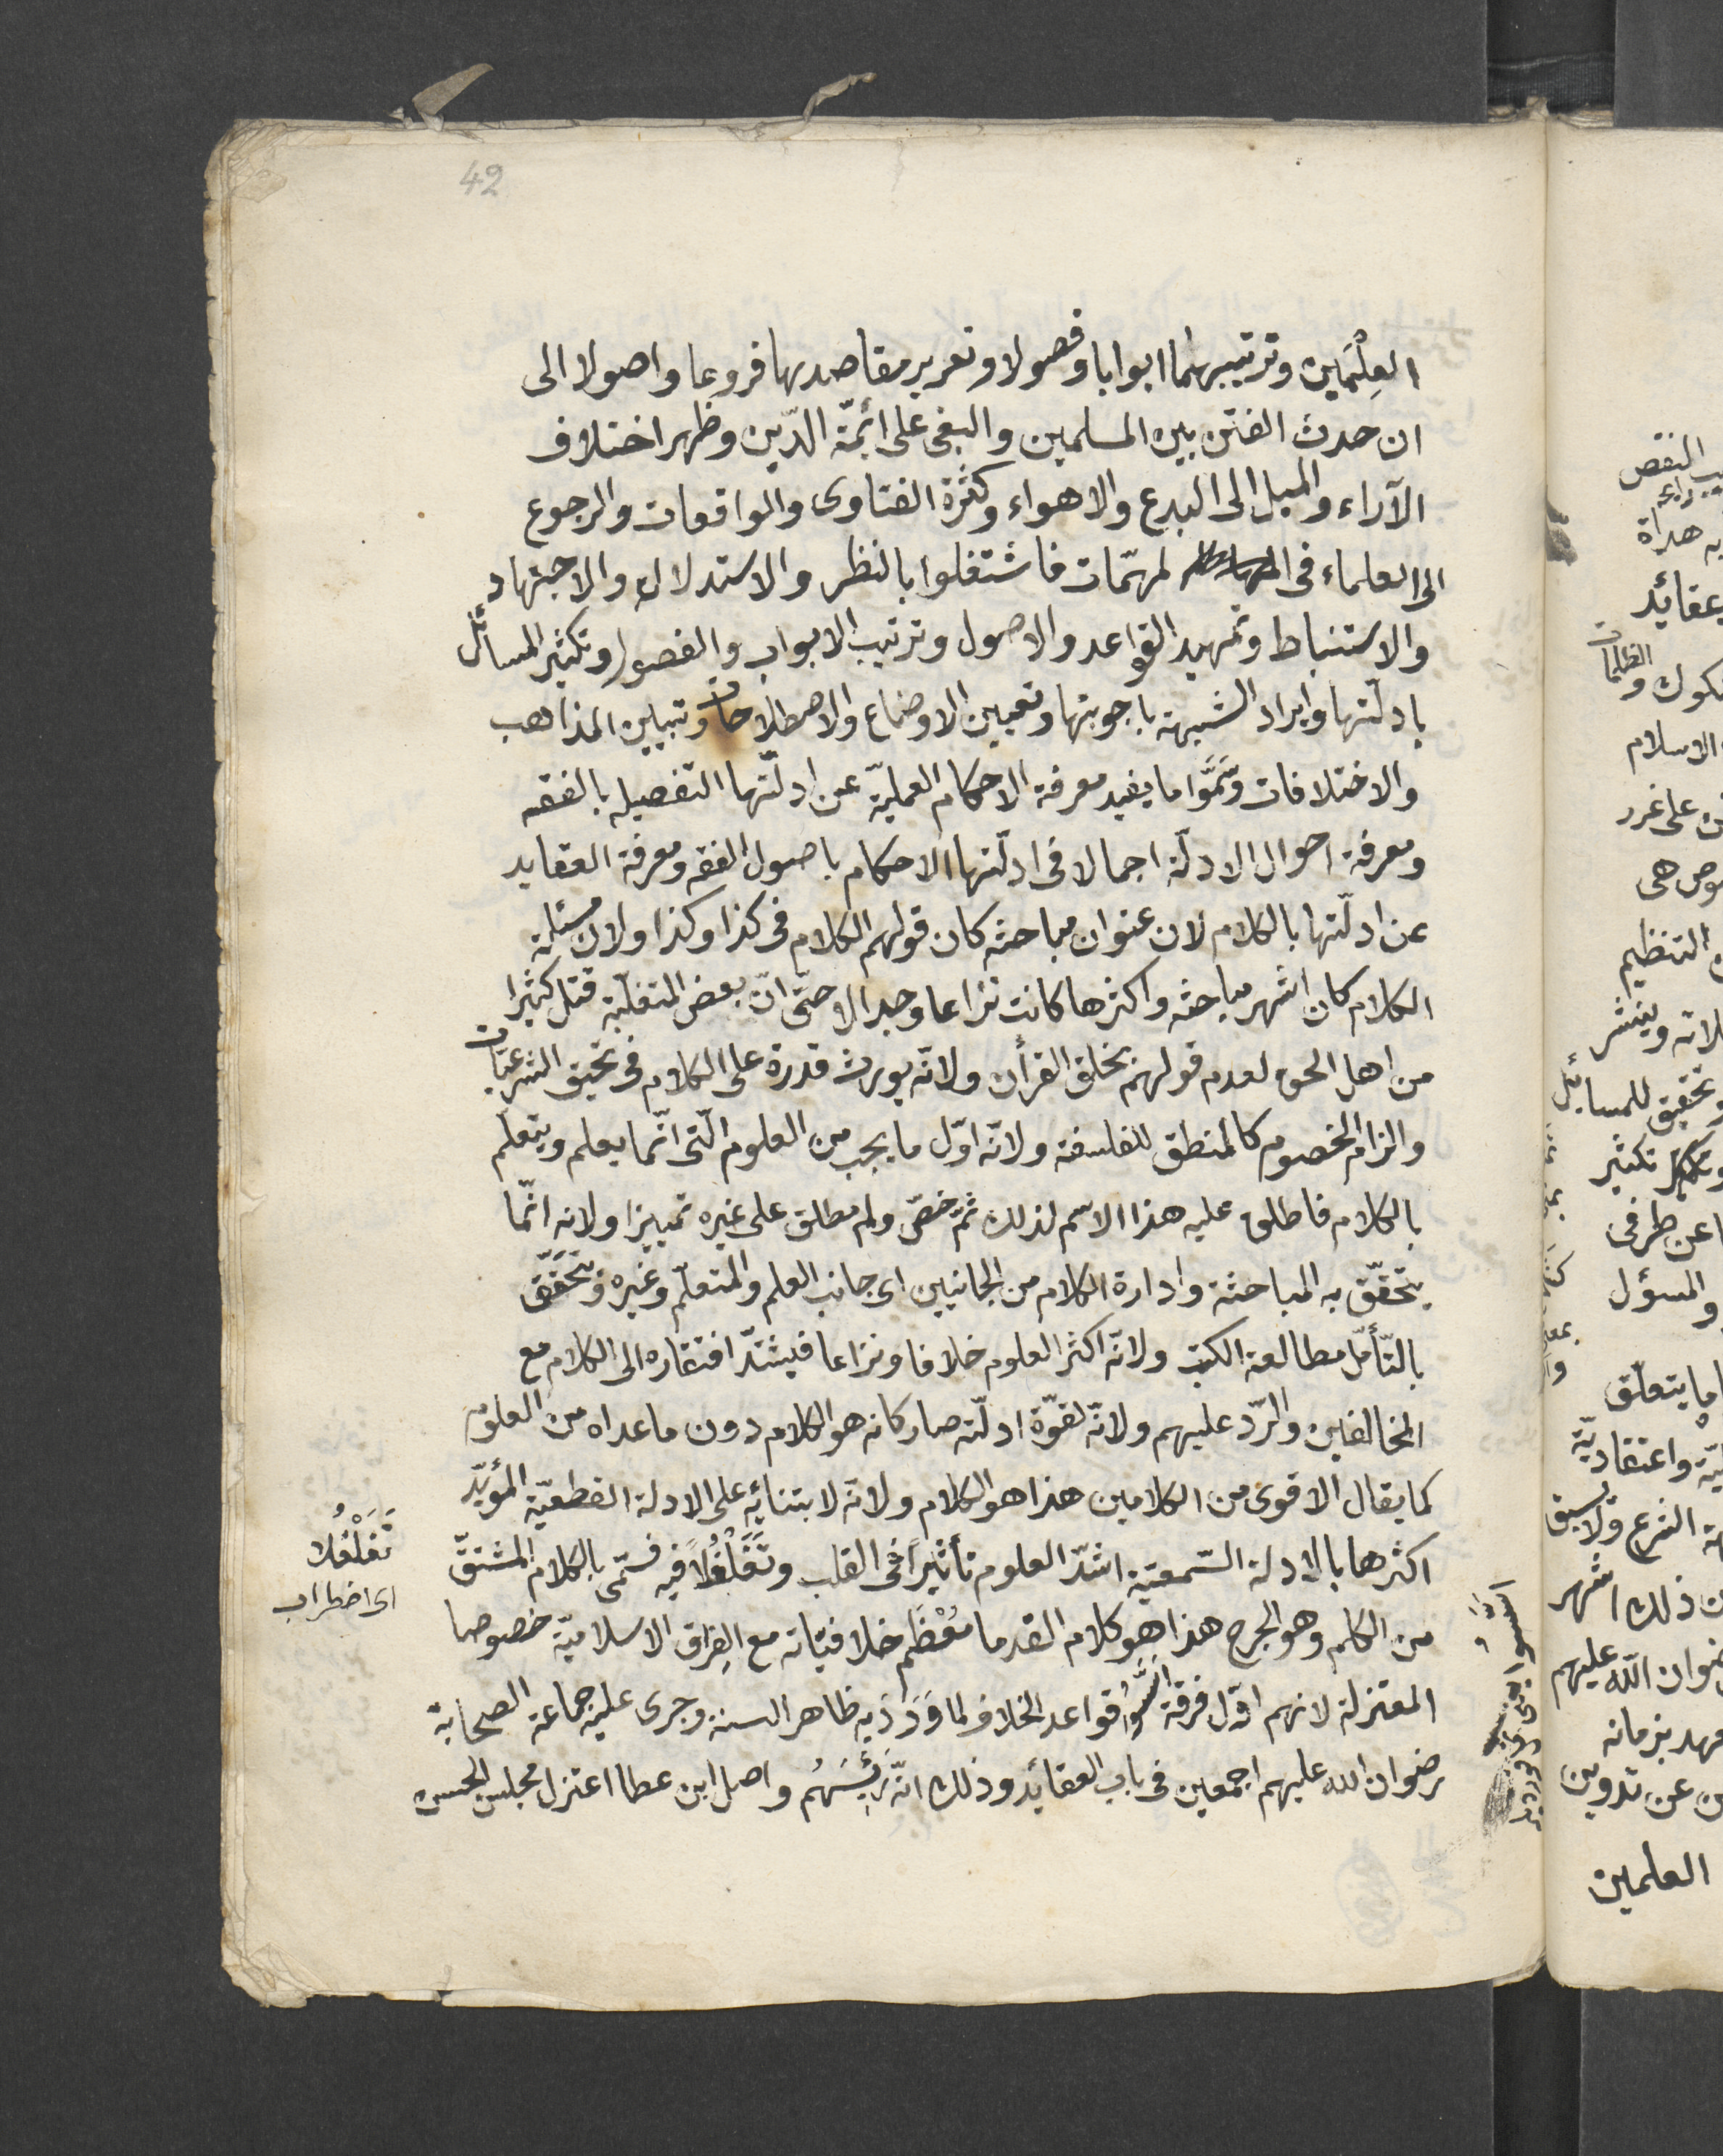 42
العِلْمَين وترتيبهما ابوابا وفصولا وتعرير مقاصدها فروعا واصولا الى
ان حدث الفتن بين المسلمين والبغى على ائمّة الدّين وظهر اختلاف
الآراء والميل الى البدع والاهواء وكثرة الفتاوى والواقعات والرجوع
الى العلماء فى المهمّات فاشتغلوا بالنظر والاستدلال والاجتهاد
والاستنباط وتمهيد القواعد والاصول وترتيب الابواب والفصول وتكثير المسائل
بادلّتها وايراد الشبهة باجوبتها وتعيين الاوضاع والاصطلاحات وتبيين المذاهب
والاختلافات وسَمَّوا ما يفيد معرفة الاحكام العمليّة عن ادلّتها التفصيله بالفقه
ومعرفة احوال الادلّة اجمالا فى ادلّتها الاحكام باصول الفقه ومعرفة العقايد
عن ادلّتها بالكلام لان عنوان مباحثه كان قولهم الكلام فى كذا وكذا ولان مسئلة
الكلام كان اشهر مباحثه واكثرها كانت نزاعا وجدالا حتّى انّ بعض المتغلّبة قتل كثيرا
من اهل الحق لعدم قولهم بخلق القرأن ولانّه يورث قدرة على الكلام فى تحيق الشرعيّات
والزام الخصوم كالمنطق للفلسفة ولانّه اوّل ما يجب من العلوم الّتى انّما يعلم ويتعلّم
بالكلام فاطلق عليه هذا الاسم لذلك ثمّ خصّ ولم مطلق على غيره تمييزا ولانه انّما
يتحقّق به المباحثة وادارة الكلام من الجانبين اى جانب العلم والمتعلّم وغيره قد يتحَقّق
بالتّأمّل مطالعة الكتب ولانّه اكثر العلوم خلافا ونزاعا فيشتدّ افتقاره الى الكلام مع
المخالفين والرّد عليهم ولانّه لقوّة ادلّته صار كانه هو الكلام دون ما عداه من العلوم
كما يقال الاقوى من الكلامين هذا هو الكلام ولانّه لابتنائه على الادلة القطعيّة المؤيّد
اكثرها بالادلة السّمعيّة اشدّ العلوم تأثيراً فى القلب وتَغَلْغُلاً فيه فسّمى بالكلام المشتقّ
من الكلم وهو الجرح هذا هو كلام القدما مُعْظَم خلافيّاته مع الفِرَق الاسلاميّة خصوصا
المعتزلة لانهم اوّل فرقة اَسَّسُوا قواعد الخلاف لما وَرَدَ به ظاهر السنة وجرى عليه جماعة الصحابة
رضوان الله عليهم اجمعين فى باب العقائد وذلك انّ رَئِيسَهُم واصل ابن عطا اعتزل مجلس الحسن
تَغَلْغُلا
اى اضطراب
النقص
هداة
عقائد
شكوك والظلمات
الاسلام
على غرر
هى
التنظيم
وينشر
وتحقيق للمسائل
تكثير
عن طرفى
والمسؤل
ما يتعلّق
واعتقاديّة
الشرع ولا يسبق
ذلك اشهر
رضوان اللّه عليهم
العهد بزمانه
عن تدوين
العلمين